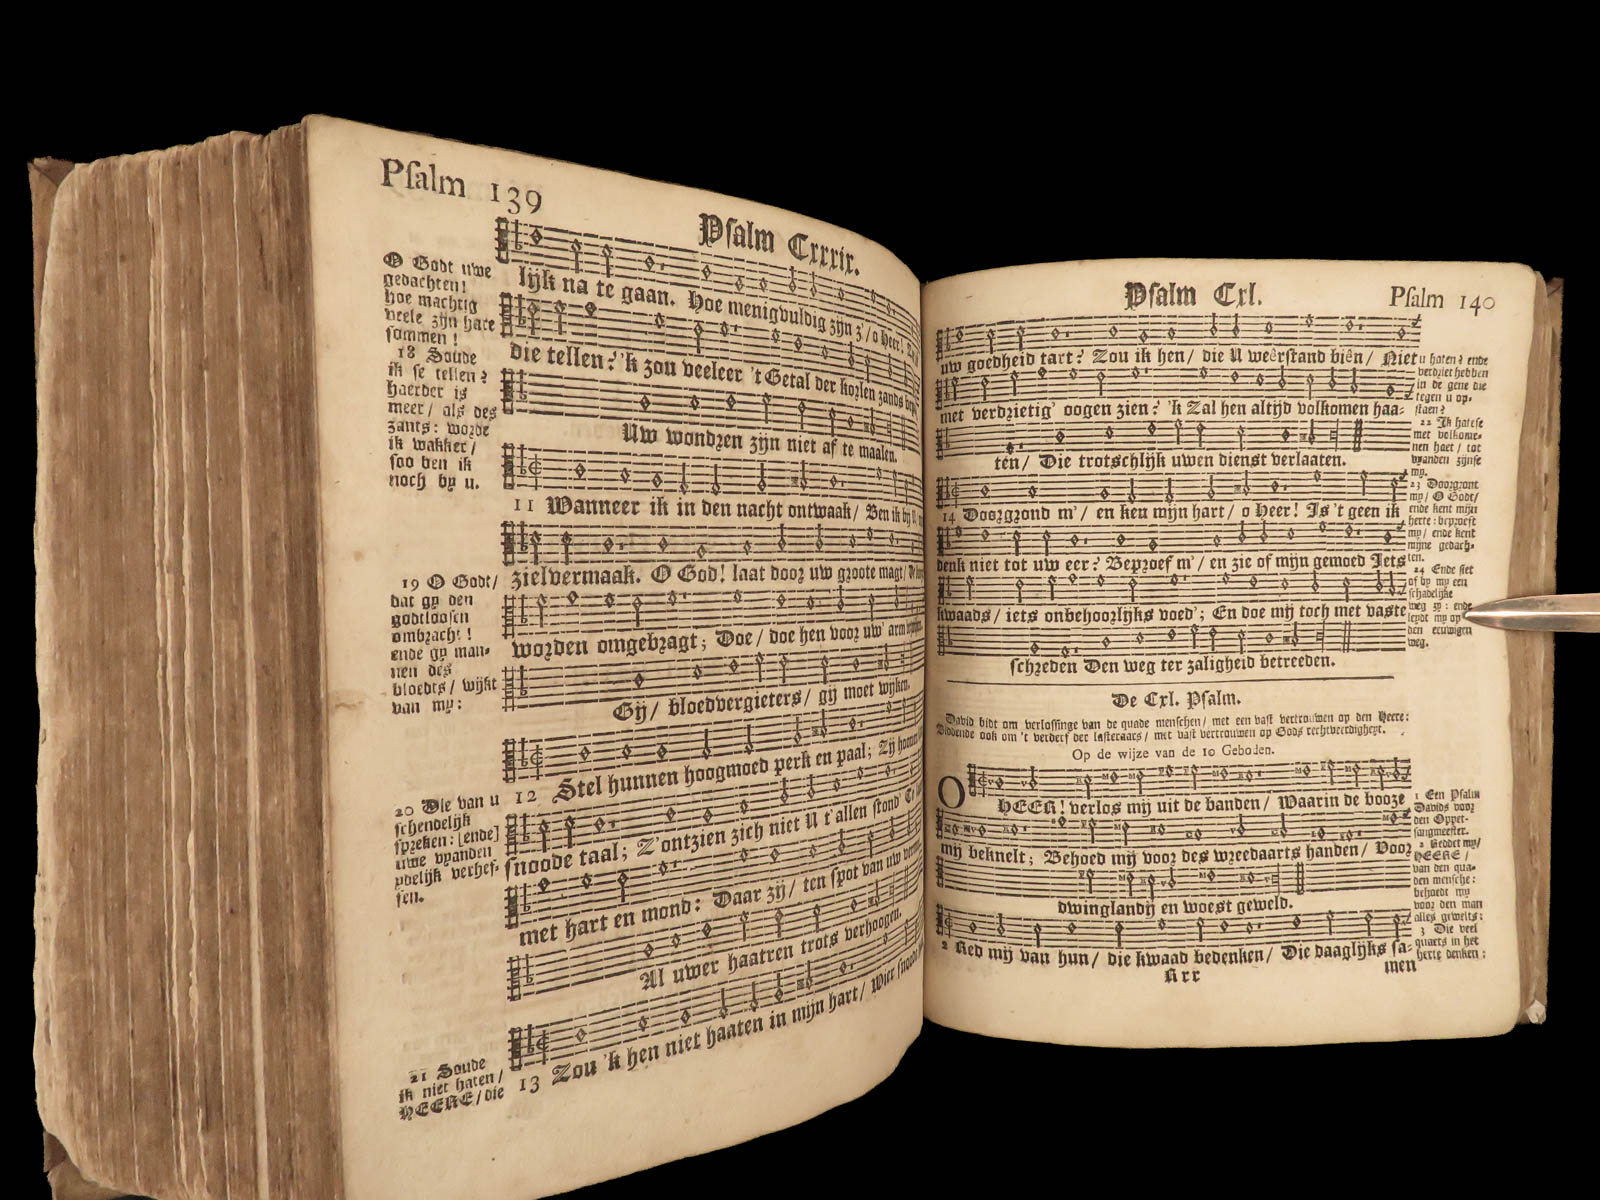 Psalm 139
Psalm Cxxxix.
O Godt uwe
gedachten!
hoe machtig
veele zijn hare
sommen!
18 Soude
ik se tellen?
haerder is
meer/ als des
zants: worde
ik wakker/
soo ben ik
noch by u.
19 O Godt/
dat gy den
godtloosen
ombracht!
ende gy man-
nen des
bloedts/ wijkt
van my:
20 Die van u
schendelijk
spreken: [ende]
uwe vyanden
ydelijk verhef-
fen.
21 Soude
ik niet haten/
HEERE/ die
lijk na te gaan. Hoe menigvuldig zijn z'/ o Heer!
die tellen? 'k zou veeleer 't Getal der korlen zands
Uw wondren zijn niet af te maalen.
11 Wanneer ik in den nacht ontwaak/ Ben ik bij U
zielvermaak. O God! laat door uw groote magt/
worden omgebragt; Doe/ doe hen voor uw' arm
Gij/ bloedvergieters/ gij moet wijken.
12 Stel hunnen hoogmoed perk en paal; Zij
snoode taal; Z'ontzien zich niet U t'allen stond'
met hart en mond: Daar zij/ ten spot van uw
Al uwer haatren trots verhoogen.
13 Zou 'k hen niet haaten in mijn hart/ Wier
Psalm Cxl.
Psalm 140
uw goedheid tart? Zou ik hen/ die U weêrstand biên/ Niet
met verdrietig' oogen zien? 'k Zal hen altijd volkomen haa-
ten/ Die trotschlijk uwen dienst verlaaten.
14 Doorgrond m'/ en ken mijn hart/ o Heer! Is 't geen ik
denk niet tot uw eer? Beproef m'/ en zie of mijn gemoed Iets
kwaads/ iets onbehoorlijks voed'; En doe mij toch met vaste
schreden Den weg ter zaligheid betreeden.
u haten? ende
verdriet hebben
in de gene die
tegen u op-
staen?
22 Ik hatese
met volkome-
nen haet/ tot
vyanden zijnse
my.
23 Doorgront
my/ O Godt/
ende kent mijn
herte: beproeft
my/ ende kent
mijne gedach-
ten.
24 Ende siet
of by my een
schadelijke
weg zy: ende
leydt my op
den eeuwigen
weg.
De Cxl. Psalm.
David bidt om verlossinge van de quade menschen/ met een vast vertrouwen op den Heere:
Biddende ook om 't verderf der lasteraars/ met vast vertrouwen op Gods rechtveerdigheyt.
Op de wijze van de 10 Geboden.
O HEER! verlos mij uit de banden/ Waarin de booze
mij beknelt; Behoed mij voor des wreedaarts handen/ Voor
dwinglandij en woest geweld.
2 Red mij van hun/ die kwaad bedenken/ Die daaglijks sa-
Rrr
men
1 Een Psalm
Davids voor
den Opper-
sangmeester.
2 Reddet my/
HEERE/
van den qua-
den mensche:
behoedt my
voor den man
alles gewelts:
3 Die veel
quaets in het
herte denken: